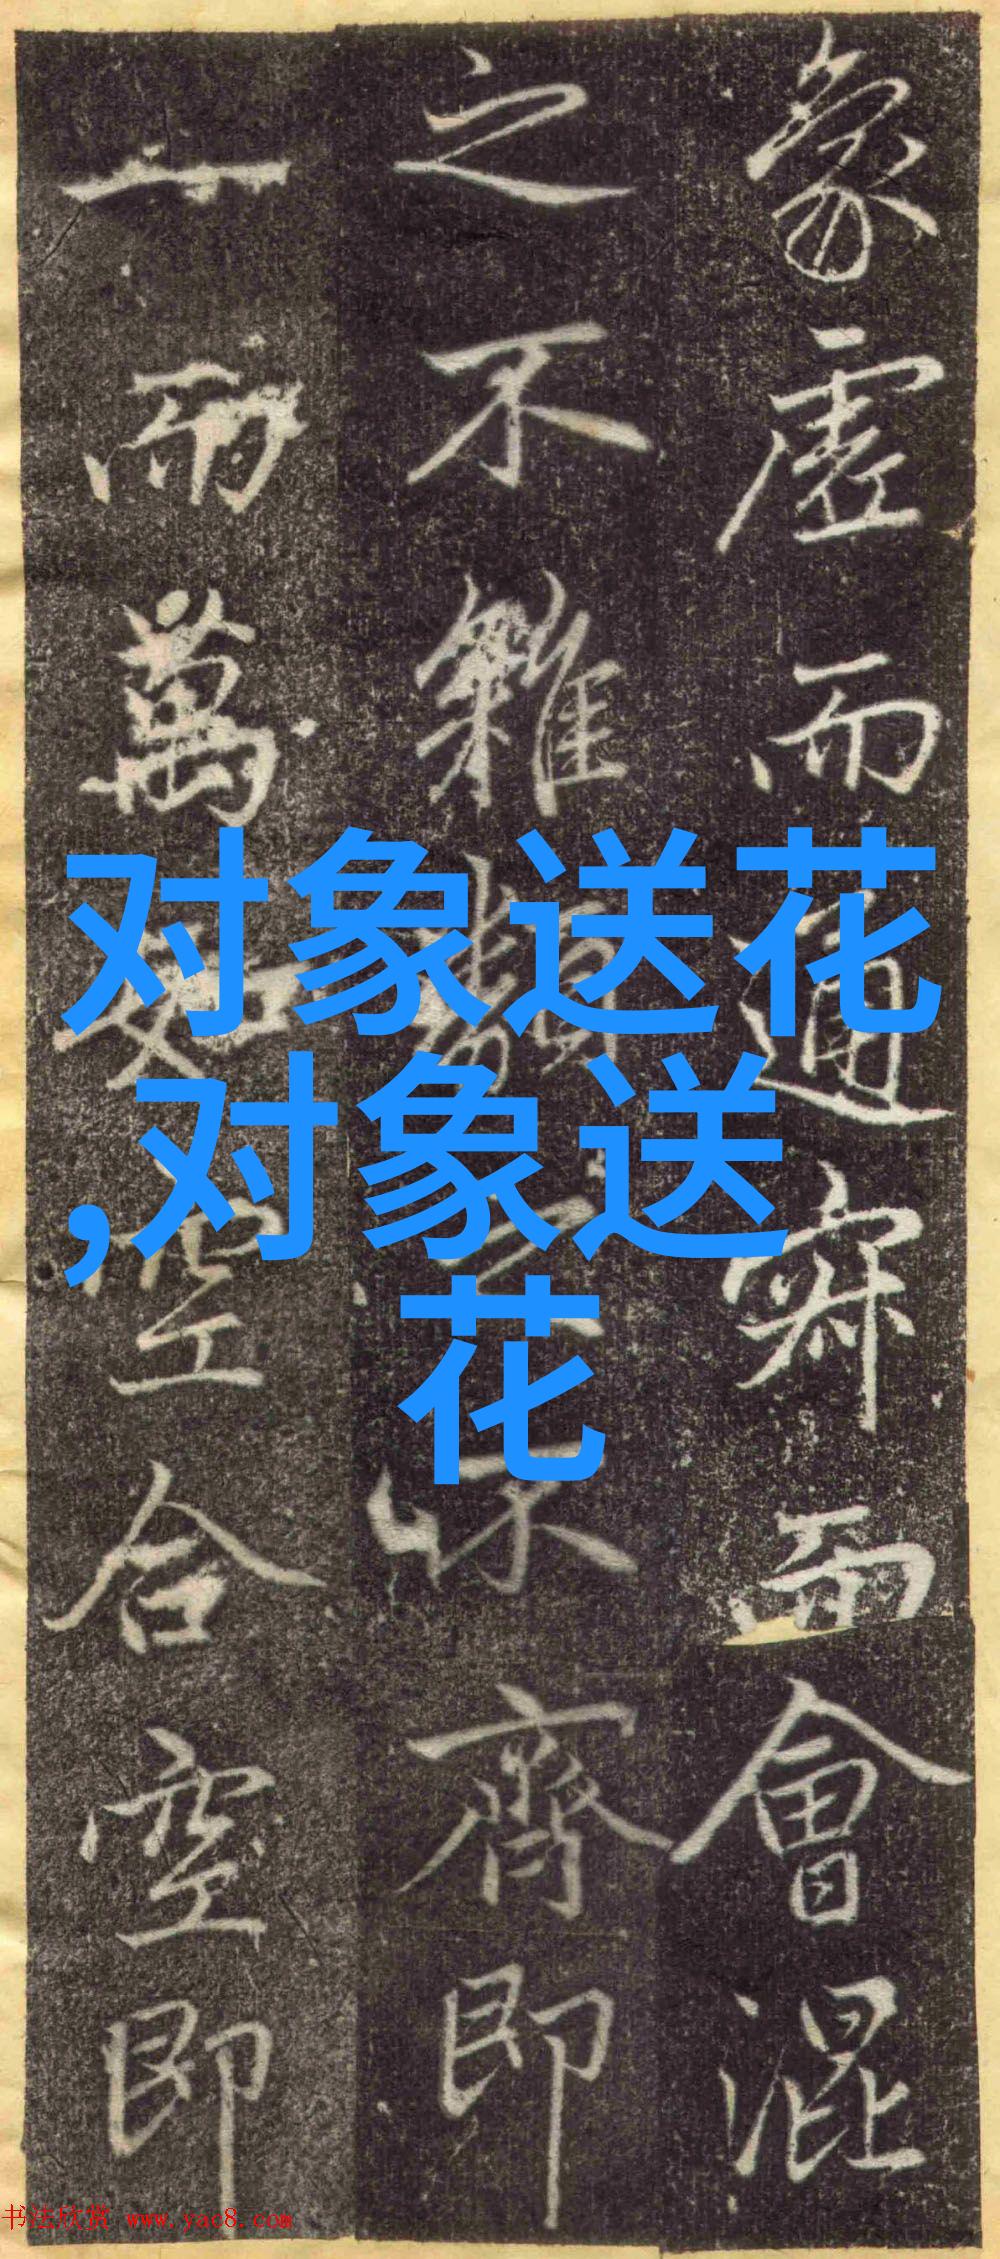 象虛而通寂而會混
之不雜類之不齊即
一而萬空合空即
对象送花
,对象送
花
书法欣赏 www.yac8.com